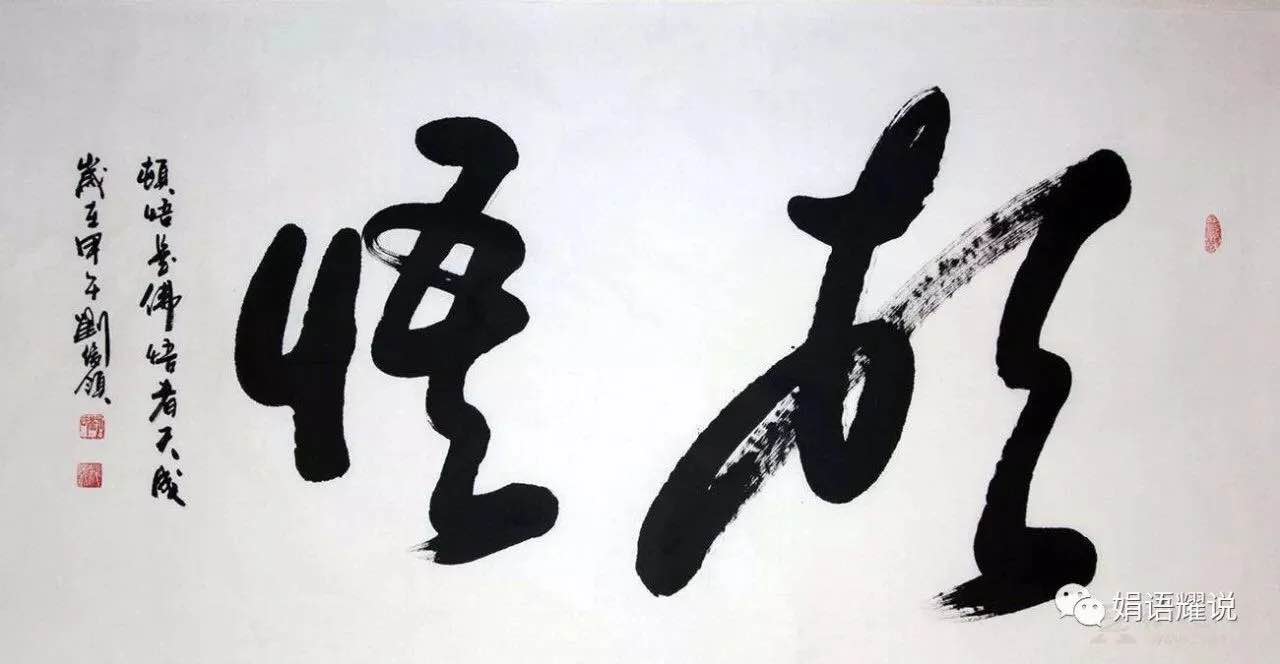 顿悟
頓悟是佛悟者天成
歲在甲午劉俊領
娟语耀说